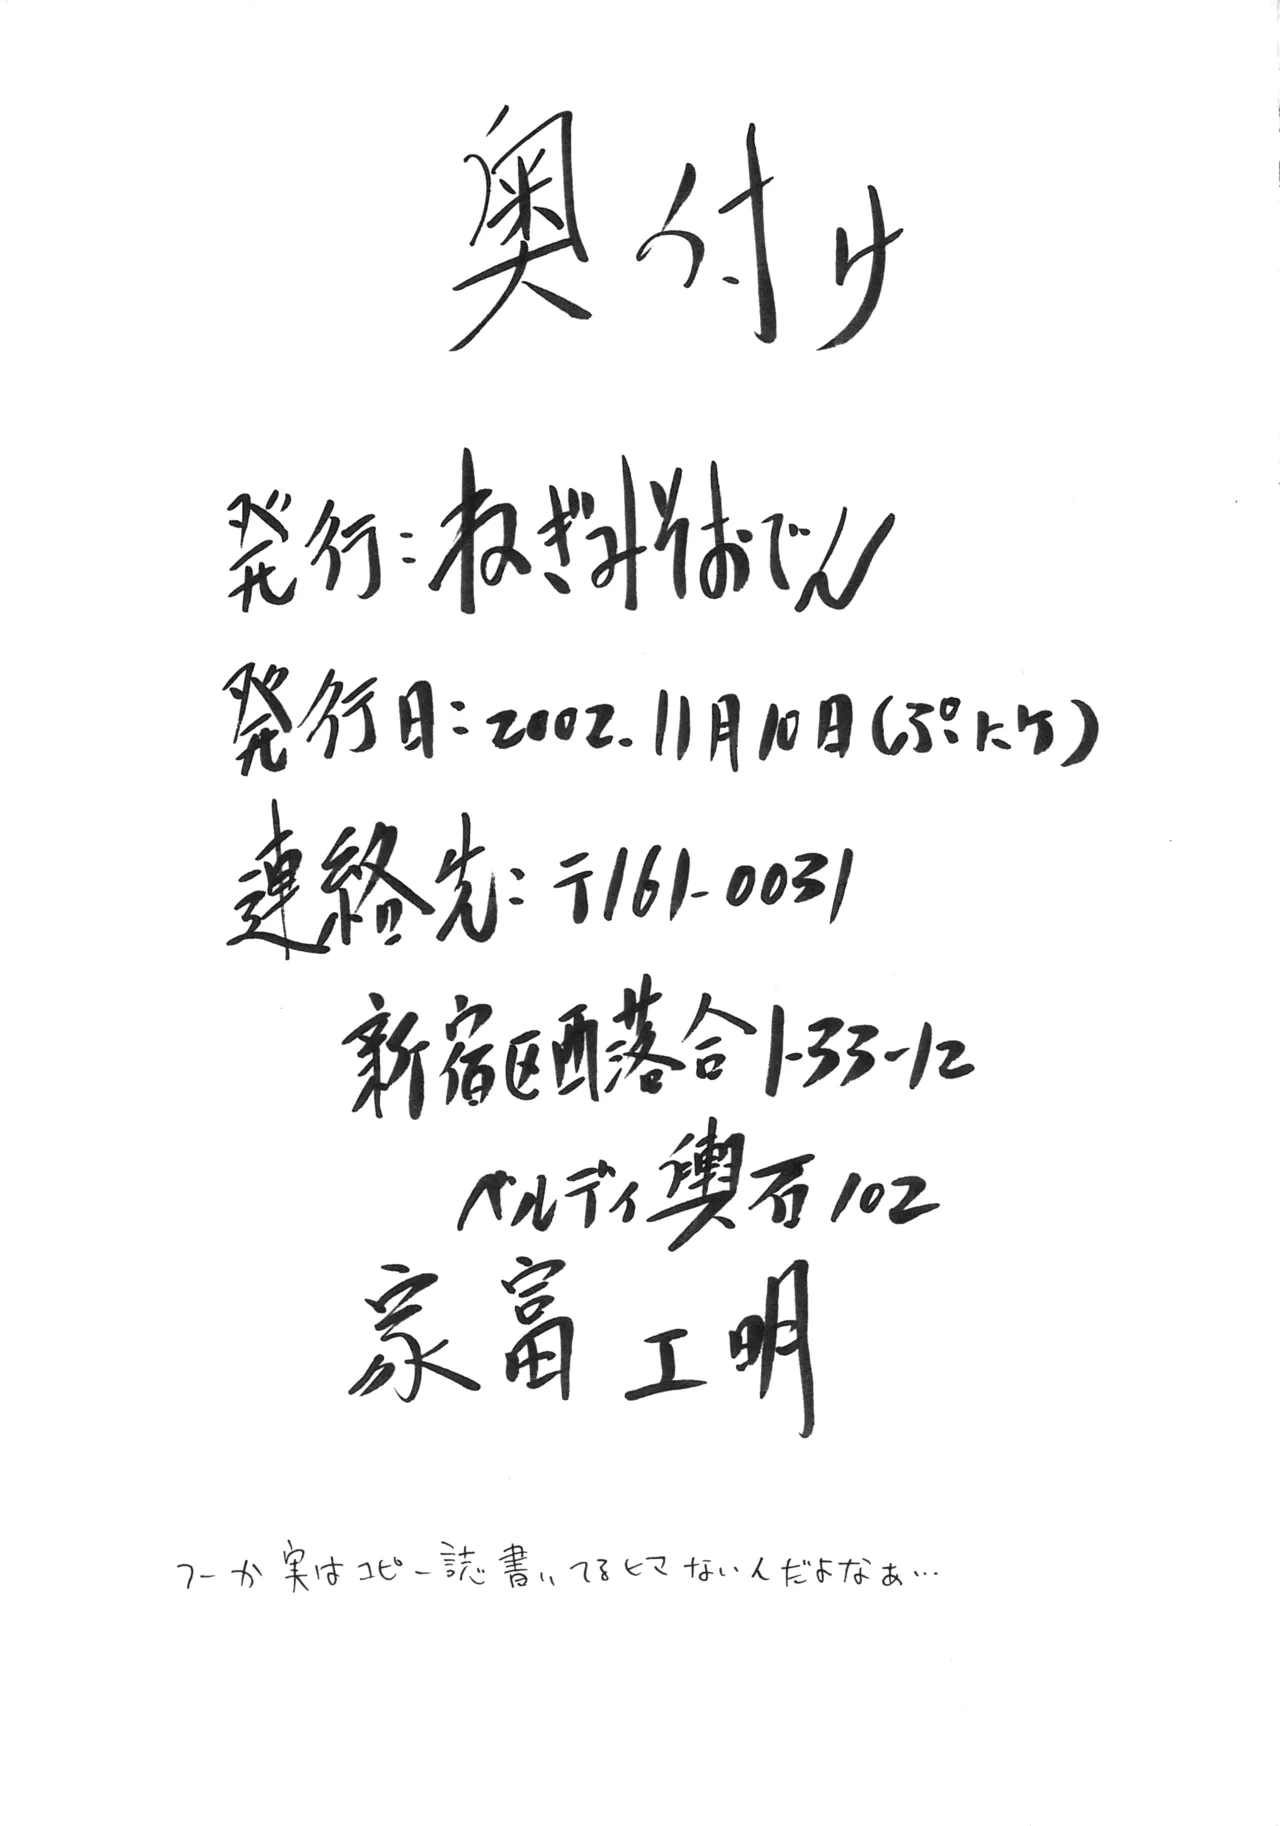 奥付け
発行:ねぎみそおでん
発行日:2002.11月10日(ぷにケ)
連絡先:〒161-0031
新宿区西落合1-33-12
ベルディ輿石102
家富工明
つーか実はコピー誌書いてるヒマないんだよなぁ…